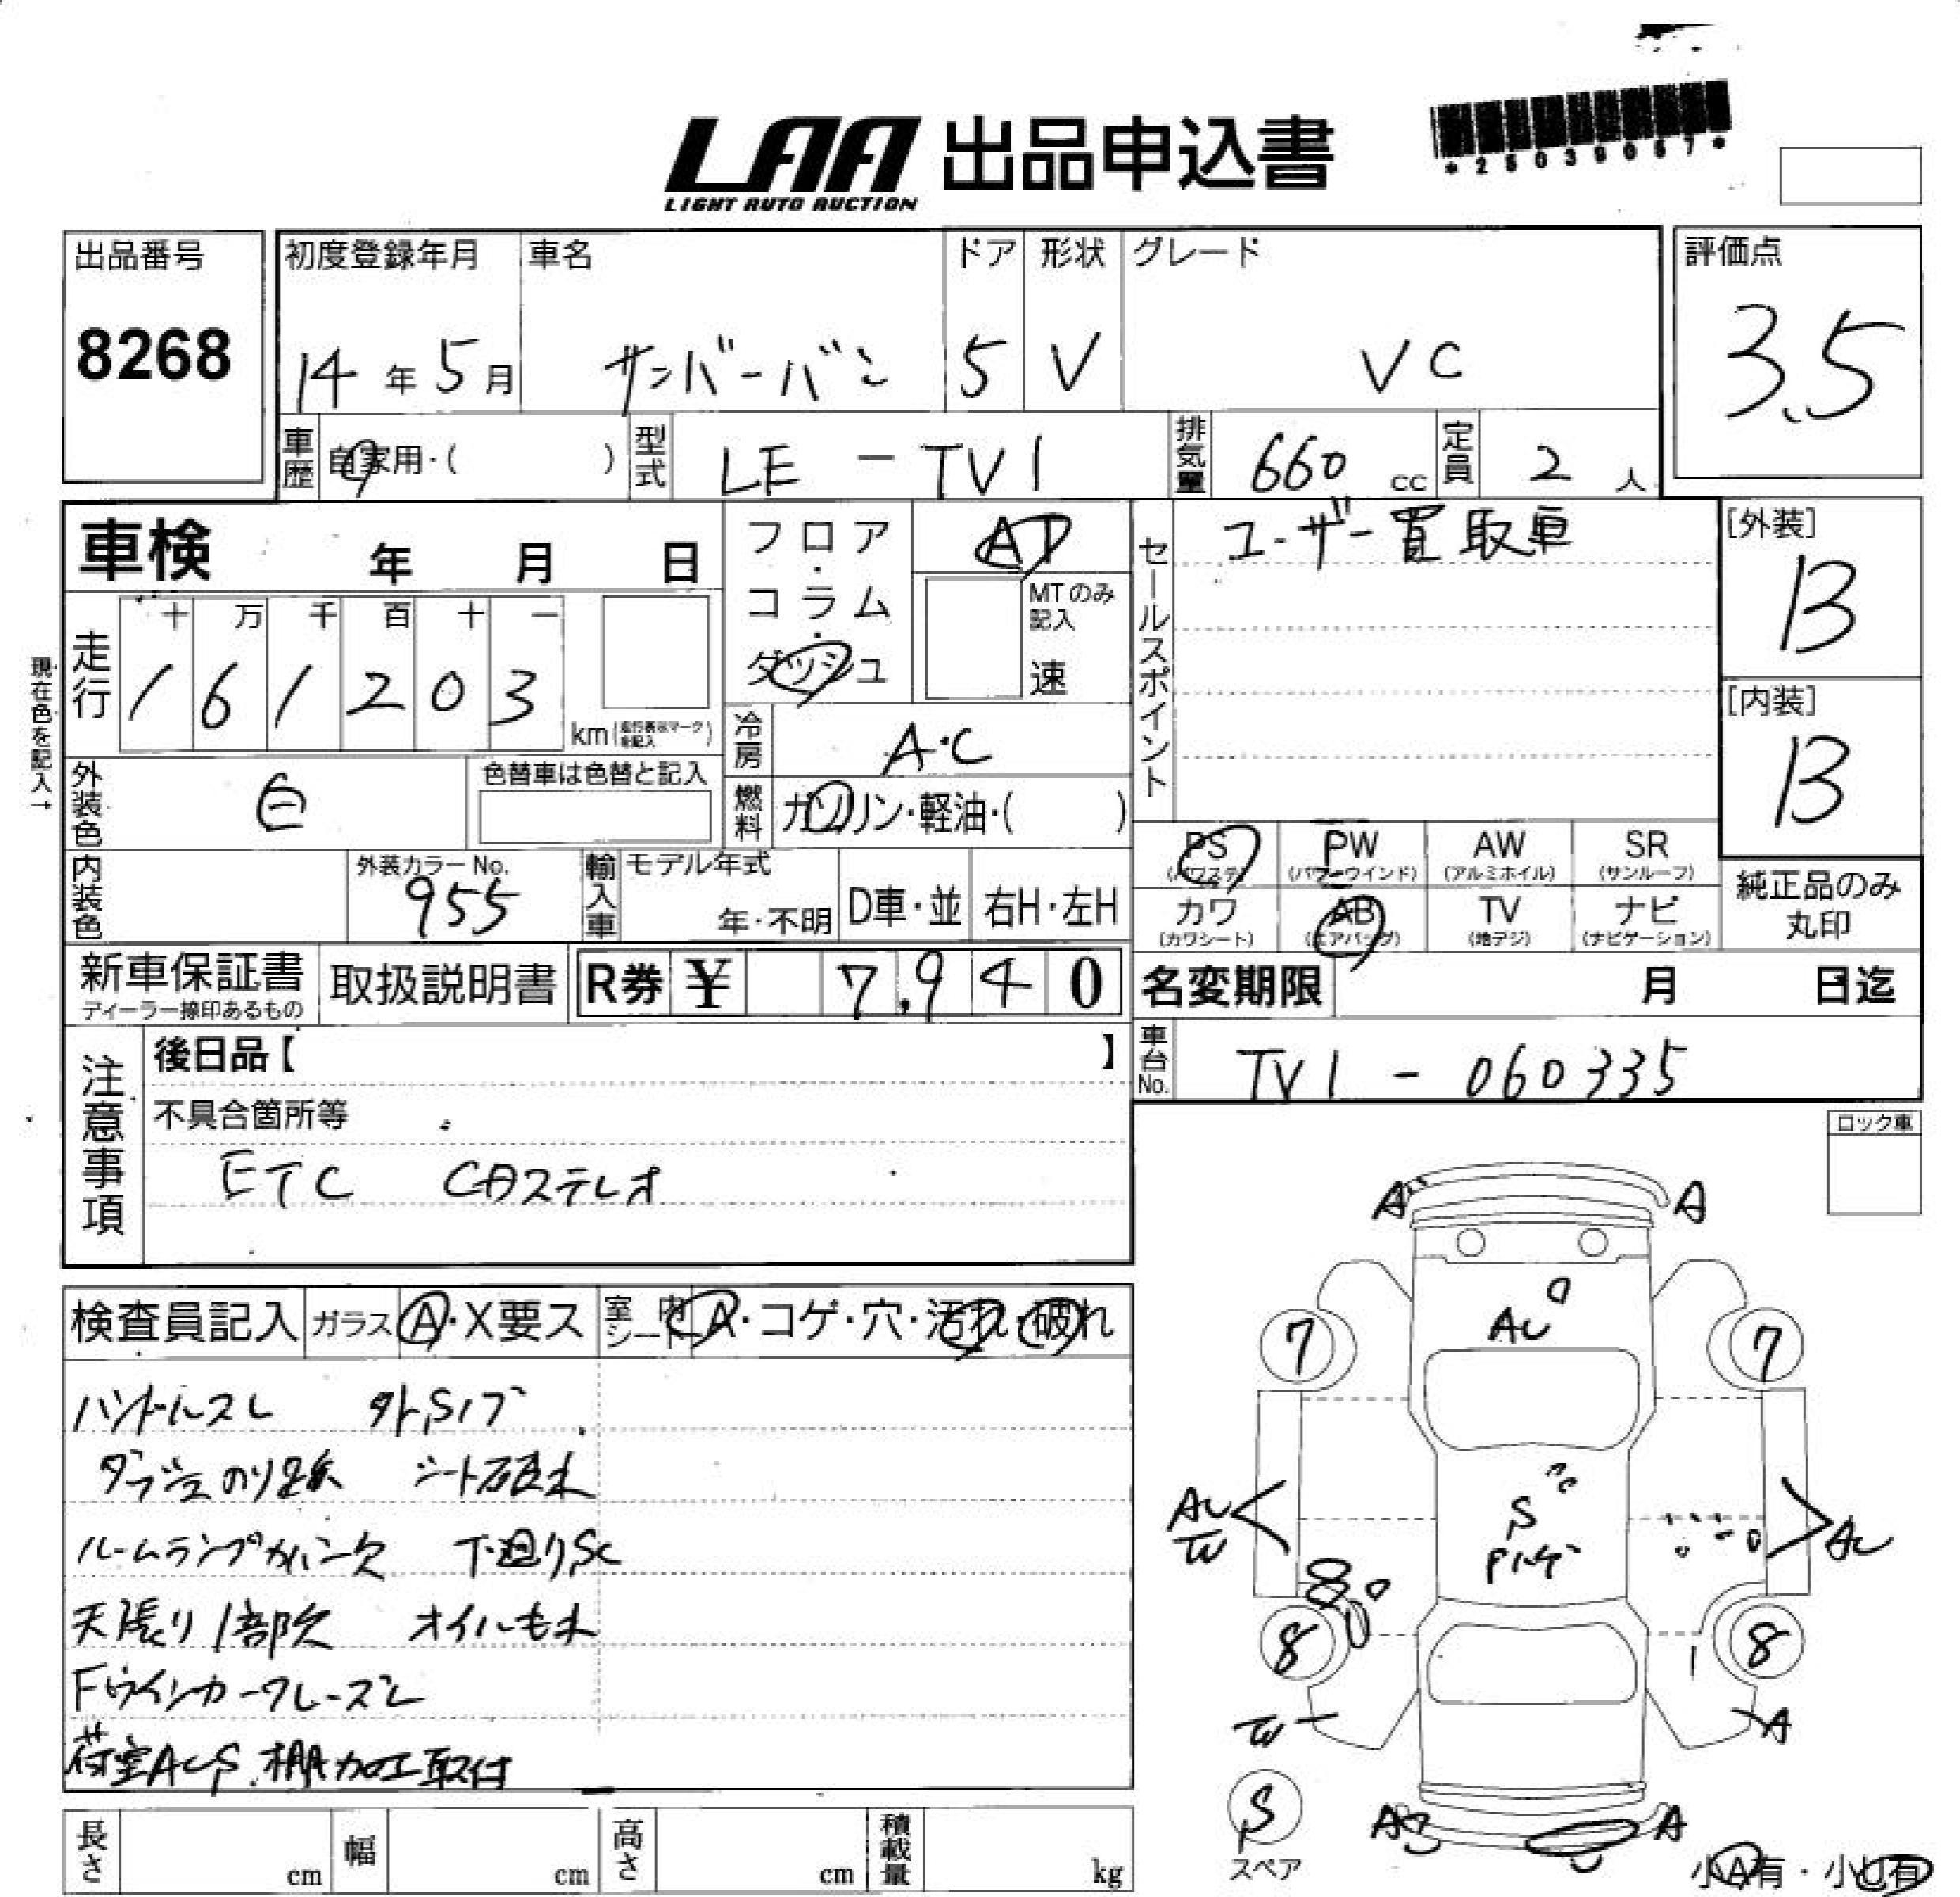 LAA 出品申込書
LIGHT AUTO AUCTION
*25039067*
出品番号
8268
初度登録年月
14年5月
車名
サンバーバン
ドア
5
形状
V
グレード
VC
評価点
3.5
車歴 自家用・( )
型式 LE-TV1
排気量 660 cc
定員 2 人
車検 年 月 日
フロア・コラム・ダッシュ
AT
MTのみ記入
速
セールスポイント
ユーザー買取車
[外装]
B
[内装]
B
現在色を記入→
走行
十 万 千 百 十 一
1 6 1 2 0 3
km (走行表示マークを記入)
冷房 A・C
外装色 白
色替車は色替と記入
燃料 ガソリン・軽油・( )
内装色
外装カラーNo.
955
輸入車
モデル年式
年・不明
D車・並
右H・左H
PS (パワステ)
PW (パワーウインド)
AW (アルミホイル)
SR (サンルーフ)
カワ (カワシート)
AB (エアバッグ)
TV (地デジ)
ナビ (ナビゲーション)
純正品のみ
丸印
新車保証書
ディーラー捺印あるもの
取扱説明書
R券 ¥ 7,940
名変期限 月 日迄
車台No. TV1-060335
注意事項
後日品【 】
不具合箇所等
ETC CDステレオ
ロック車
検査員記入
ガラス A・X要ス
室内シート A・コゲ・穴・汚れ・破れ
ハンドルスレ 外Sハゲ
ダッシュのり跡 シート破れ
ルームランプカバー欠 下廻りSC
天張り1部欠 オイルもれ
Fウインカーワレ・ズレ
荷室AUS 棚加工取付
A A
AU
7 7
AU
S
Pハゲ
AU
8 8
A
S
スペア
A A
小A有・小U有
長さ cm
幅 cm
高さ cm
積載量 kg